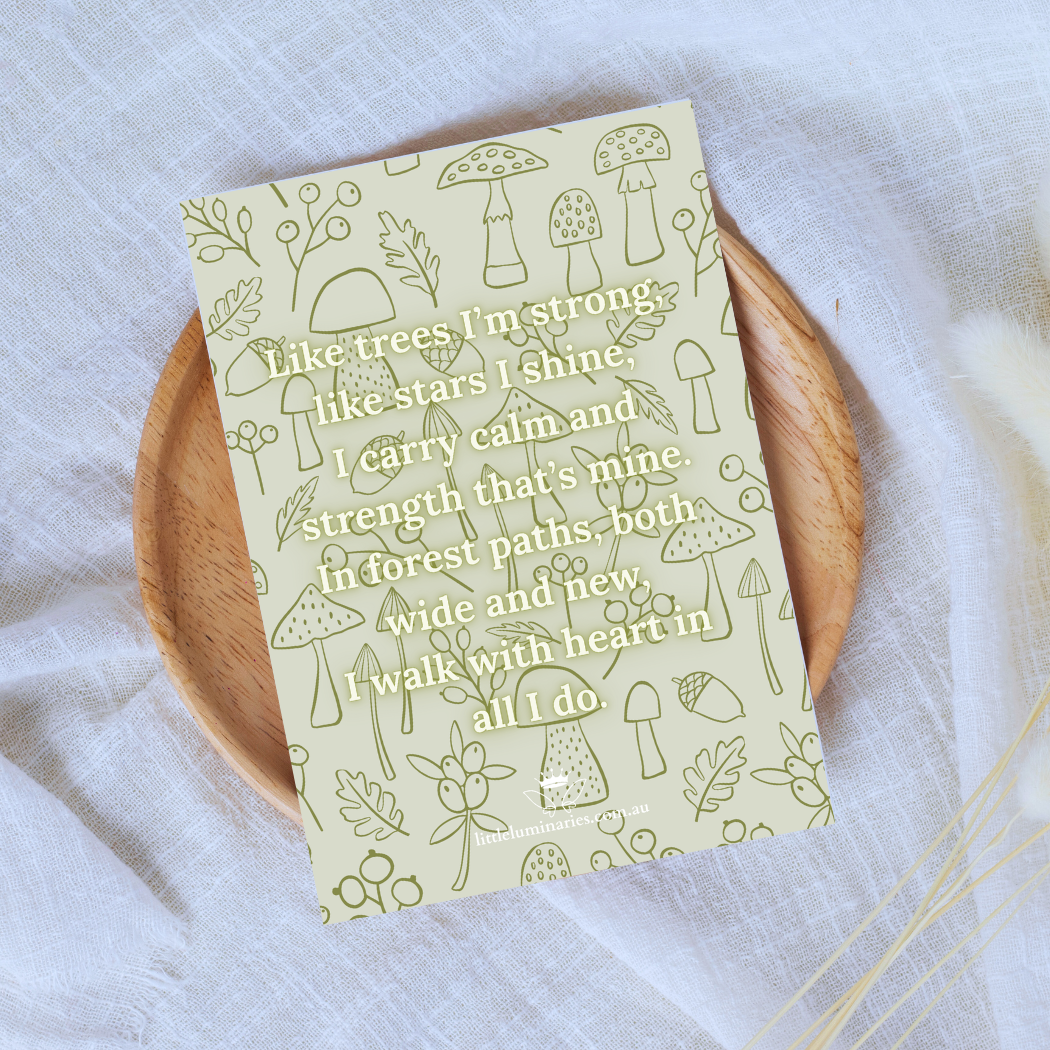 Like trees I’m strong,
like stars I shine,
I carry calm and
strength that’s mine.
In forest paths, both
wide and new,
I walk with heart in
all I do.
littleluminaries.com.au